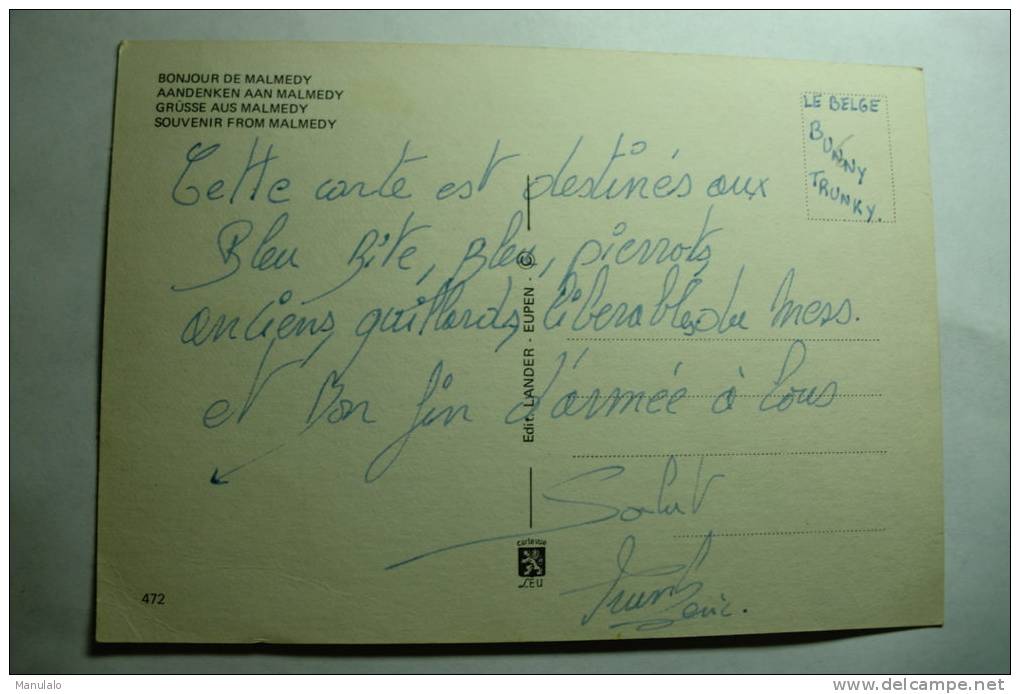 BONJOUR DE MALMEDY
AANDENKEN AAN MALMEDY
GRÜSSE AUS MALMEDY
SOUVENIR FROM MALMEDY
LE BELGE
BUNNY
TRUNKY.
Cette carte est destinés aux
Bleu Bite, Bleu, pierrots,
anciens, quillards, libérables du mess.
et Bon fin d'armée à tous
Salut
Edit. LANDER - EUPEN - ©
carte vue
LEU
472
Manulalo
www.delcampe.net